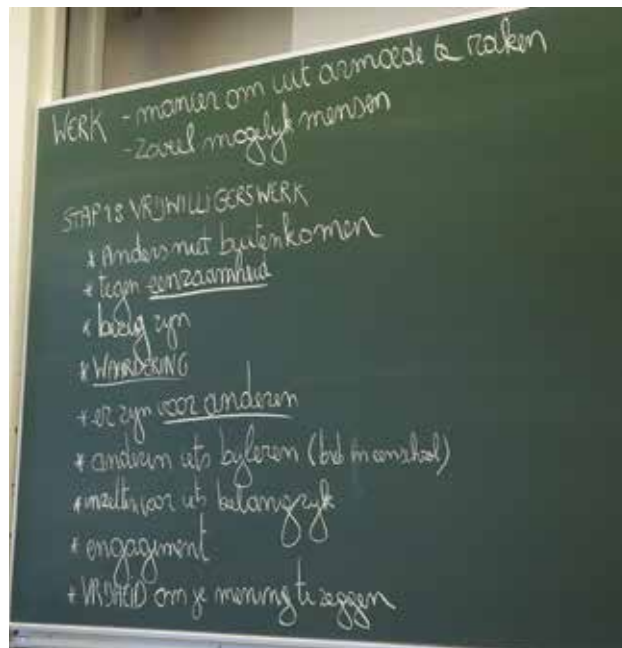 WERK - manier om uit armoede te raken
- zoveel mogelijk mensen
STAP 18 VRIJWILLIGERSWERK
* Anders niet buitenkomen
* tegen eenzaamheid
* bezig zijn
* WAARDERING
* er zijn voor anderen
* anderen iets bijleren (bvb in een school)
* inzetten voor iets belangrijk
* engagement
* VRIJHEID om je mening te zeggen